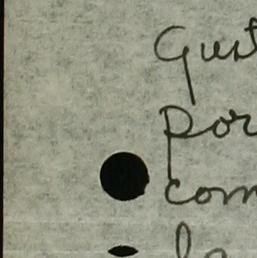 Gust
por
com
la